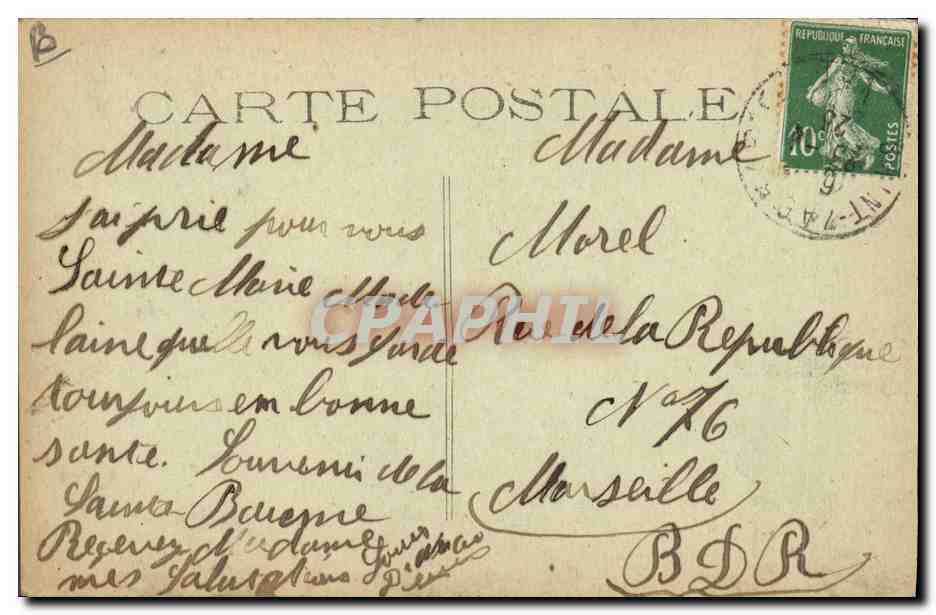 B
REPUBLIQUE FRANÇAISE
10c
POSTES
CARTE POSTALE
Madame
j'ai prie pour vous
Sainte Marie Made
laine quelle vous garde
toujours en bonne
sante. Souvenir de la
Sainte Baume
Recevez Madame
mes Salutations
Madame
Morel
Rue de la Republique
No 76
Marseille
BDR
CPAPHIL